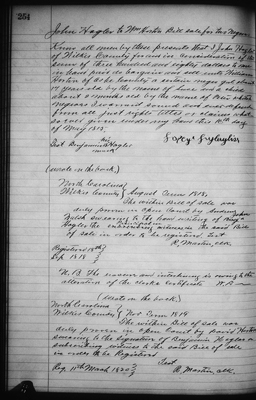 251
John Hagler to Wm Horton Bill sale for two Negroes
Know all men by these presents that I John Hagler
of Wilkes County for and in consideration of the
sum of three hundred and eighty dollars to me
in hand paid do bargain and sell unto William
Horton of Ashe County a certain negro girl about
17 years old by the name of and a child
about 2 months old by the name of which
negroes I warrant sound and well
from all just rights titles or claims
given under my hand this day
of May 1815.
Test Benjamin his Hagler
mark
(Seals on the book.)
North Carolina
Wilkes County } August Term 1818,
The within Bill of sale was
duly proven in open Court by
swearing to the hand writing of
Hagler the subscribing witness in the said Bill
of sale in order to be registered, test
R. Martin, clk.
Registered 18th
Sep. 1818
N. B. The erasure and interlining is owing to the
alteration of the clerks certificate W. R.
(Seals on the book.)
North Carolina
Wilkes County } Nov Term 1819
The within Bill of sale was
duly proven in open Court by David Horton
swearing to the signature of Benjamin Hagler a
subscribing witness to the said Bill of Sale
in order to be Registered
Test
Reg. 11th March 1820 R. Martin, clk.